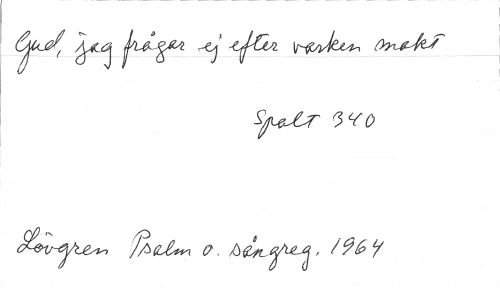 Gud, jag frågar ej efter varken makt
Spalt 340
Lövgren Psalm o. sångreg. 1964